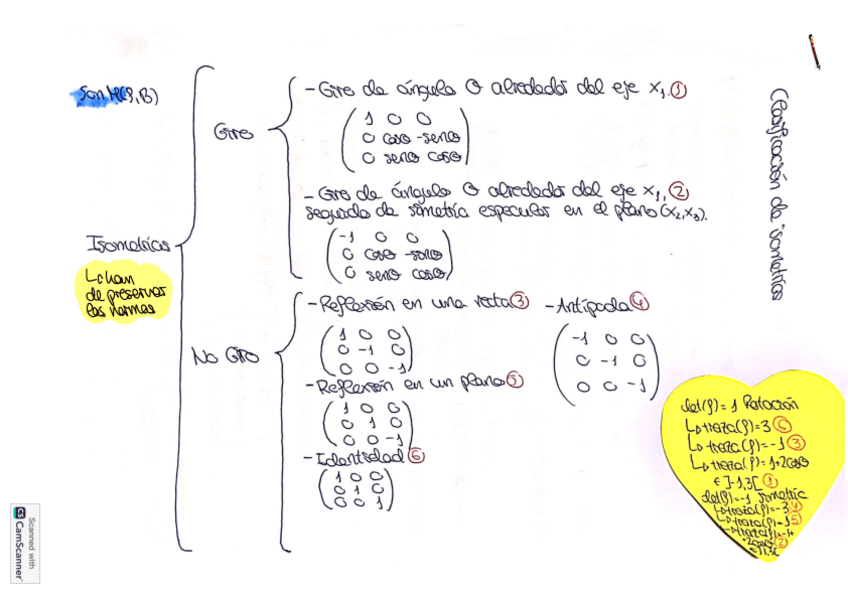 Clasificación de isometrías
Son M(f,B)
Isometrías
↳ han
de preservar
las normas
Giro
- Giro de ángulo θ alrededor del eje x₁. ①
1 0 0
0 cosθ -senθ
0 senθ cosθ
- Giro de ángulo θ alrededor del eje x₁, ②
seguido de simetría especular en el plano (x₂,x₃).
-1 0 0
0 cosθ -senθ
0 senθ cosθ
No Giro
- Reflexión en una recta ③
1 0 0
0 -1 0
0 0 -1
- Antípoda ④
-1 0 0
0 -1 0
0 0 -1
- Reflexión en un plano ⑤
1 0 0
0 1 0
0 0 -1
- Identidad ⑥
1 0 0
0 1 0
0 0 1
det(f)=1 Rotación
↳ traza(f)=3 ⑥
↳ traza(f)=-1 ③
↳ traza(f)=1+2cosθ
∈ ]-1,3[ ①
det(f)=-1 simetría
↳ traza(f)=-3 ④
↳ traza(f)=1 ⑤
↳ traza(f)=-1+
2cosθ ②
Scanned with
CS CamScanner